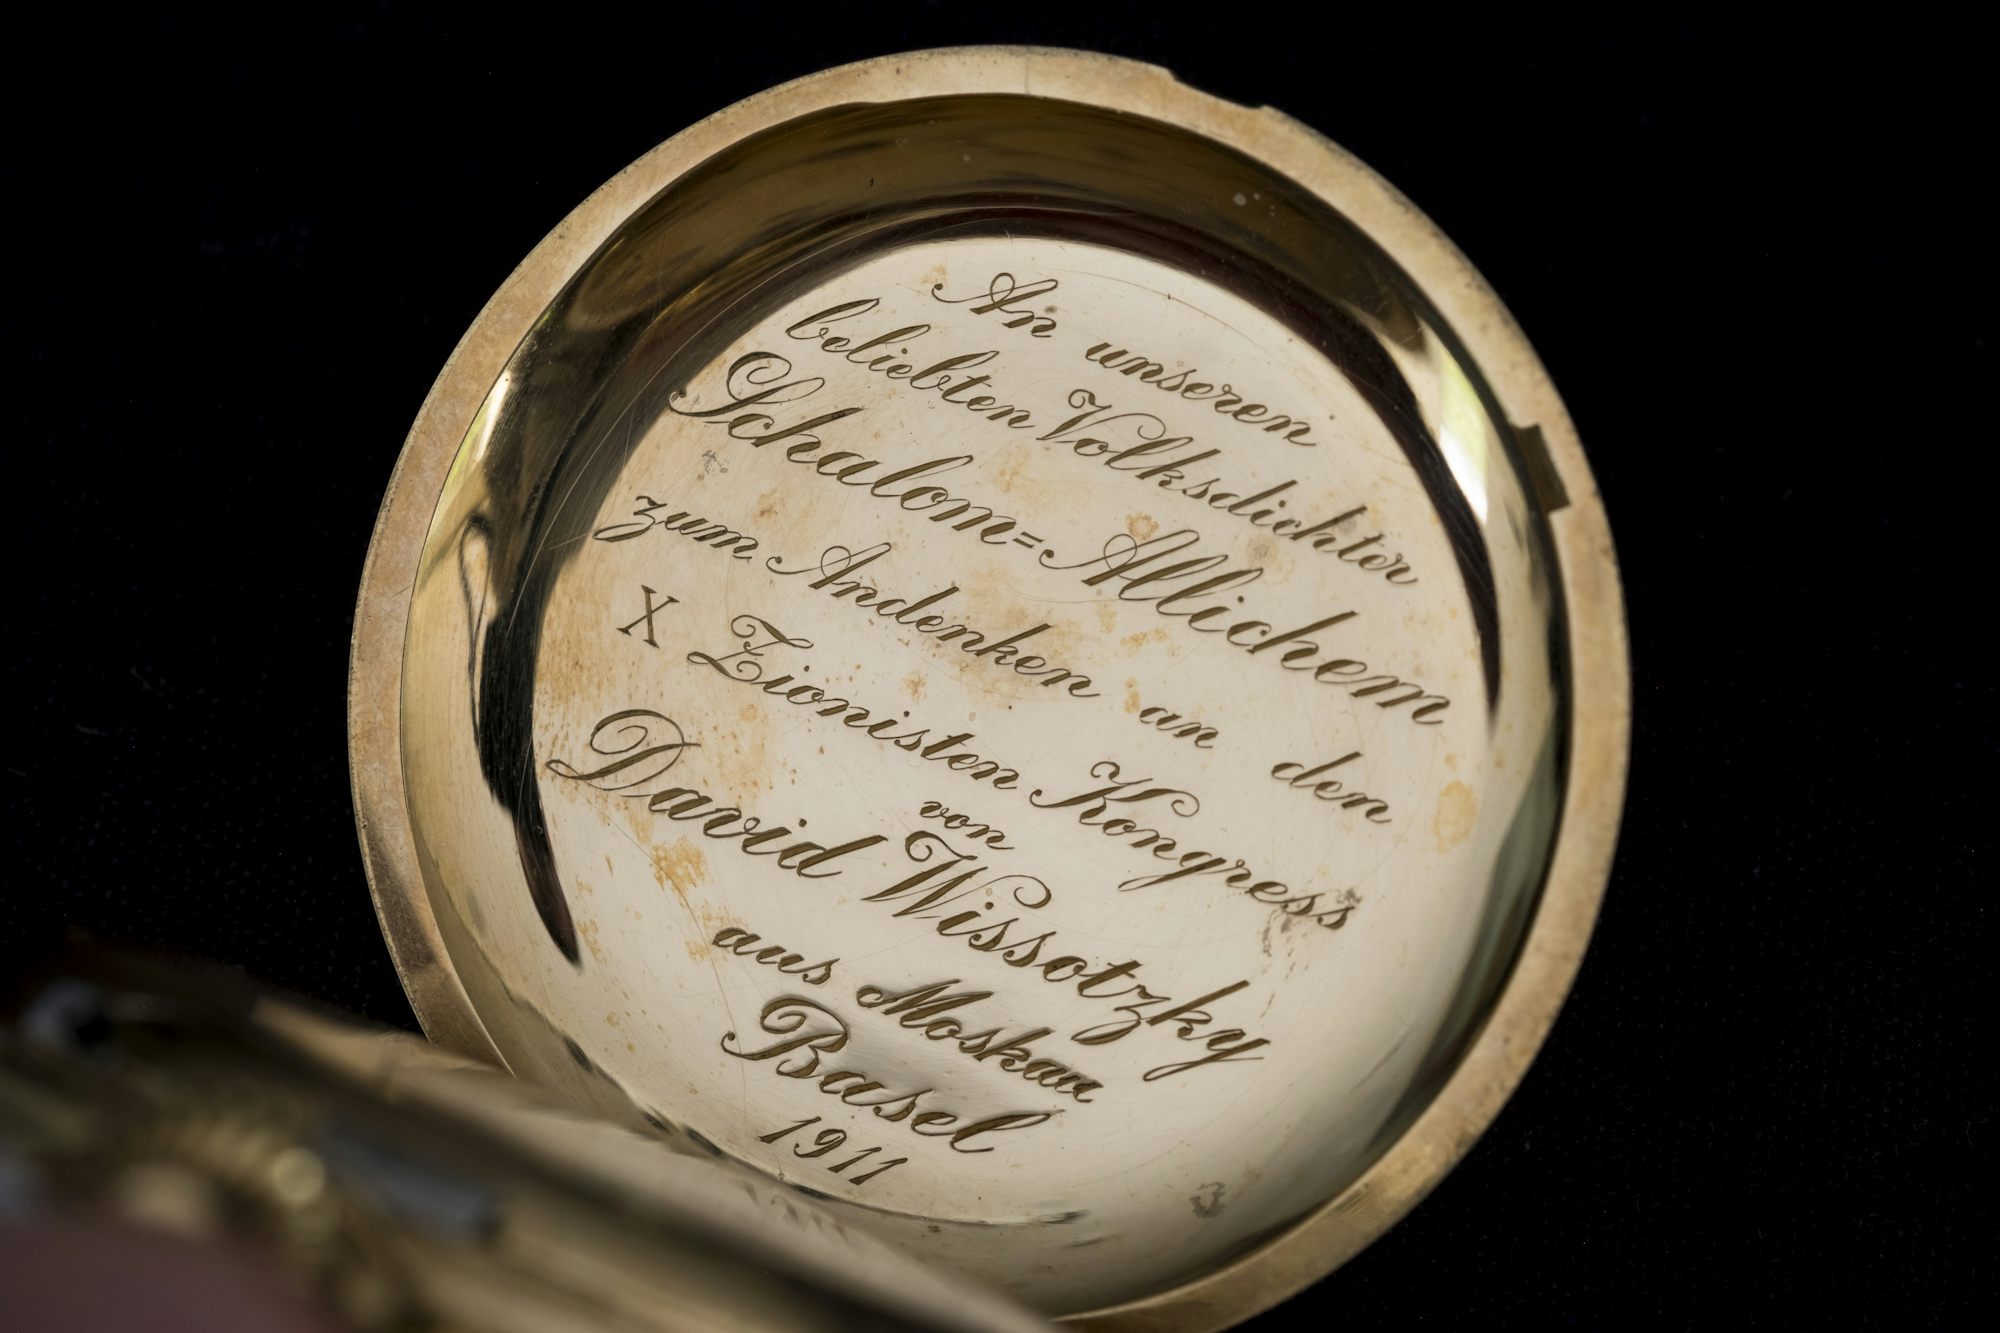 An unseren
beliebten Volksdichter
Schalom=Allichem
zum Andenken an den
X Zionisten Kongress
von
David Wissotzky
aus Moskau
Basel
1911